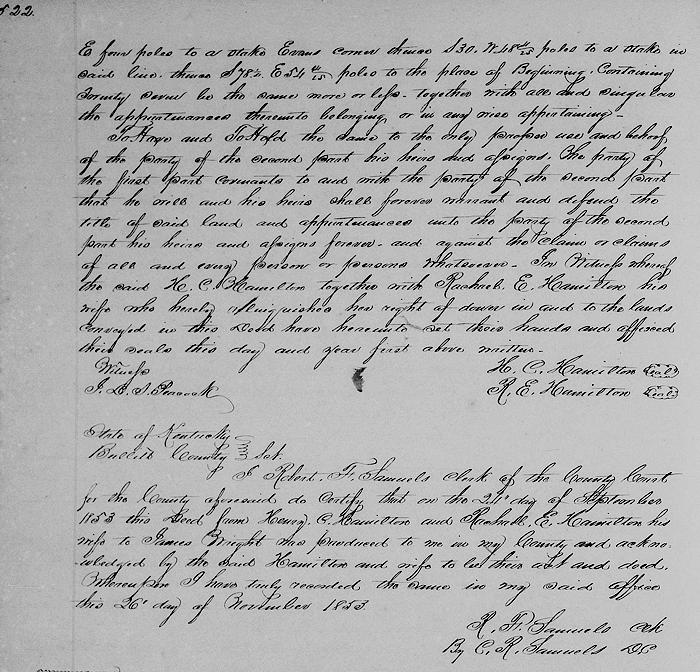 522.
E four poles to a stake Evans corner thence S 30. W 48 4/25 poles to a stake in
said line. thence S 78½. E 54 4/25 poles to the place of Beginning. Containing
seventy seven be the same more or less. together with all and singular
the appurtenances thereunto belonging or in any wise appertaining –
To Have and To Hold the same to the only proper use and behoof
of the party of the second part his heirs and assigns. The party of
the first part covenants to and with the party of the second part
that he will and his heirs shall forever warrant and defend the
title of said land and appurtenances unto the party of the second
part his heirs and assigns forever. and against the claim or claims
of all and every person or persons whatever – In Witness whereof
the said H. C. Hamilton together with Rachael. E. Hamilton his
wife who hereby relinquishes her right of dower in and to the lands
conveyed in this Deed have hereunto set their hands and affixed
their seals this day and year first above written –
Witness H. C. Hamilton Seal
Peacock R. E. Hamilton Seal
State of Kentucky
Bullitt County Sct.
I Robert. F. Samuels clerk of the County Court
for the County aforesaid do Certify that on the 24' day of September
1853 this Deed from Henry. C. Hamilton and Rachael. E. Hamilton his
wife to James Bright was produced to me in my County and ackno
wledged by the said Hamilton and wife to be their act and deed.
Whereupon I have truly recorded the same in my said office
this 26' day of November 1853.
R. F. Samuels clk
By C. R. Samuels D.C